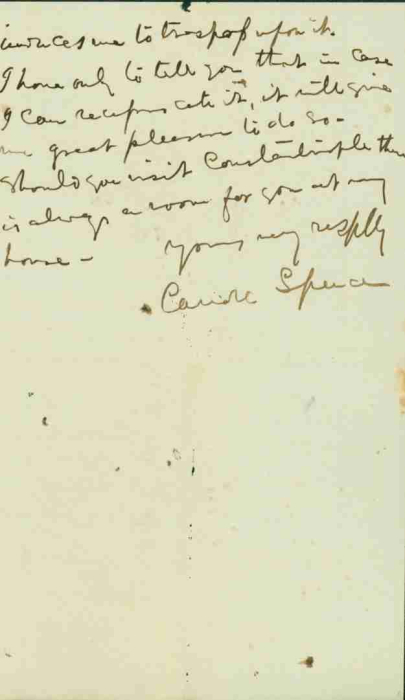 induces me to trespass upon it.
I have only to tell you that in case
I can reciprocate it, it will give
me great pleasure to do so -
Should you visit Constantinople there
is always a room for you at my
house -
yours very respflly
Carroll Spence